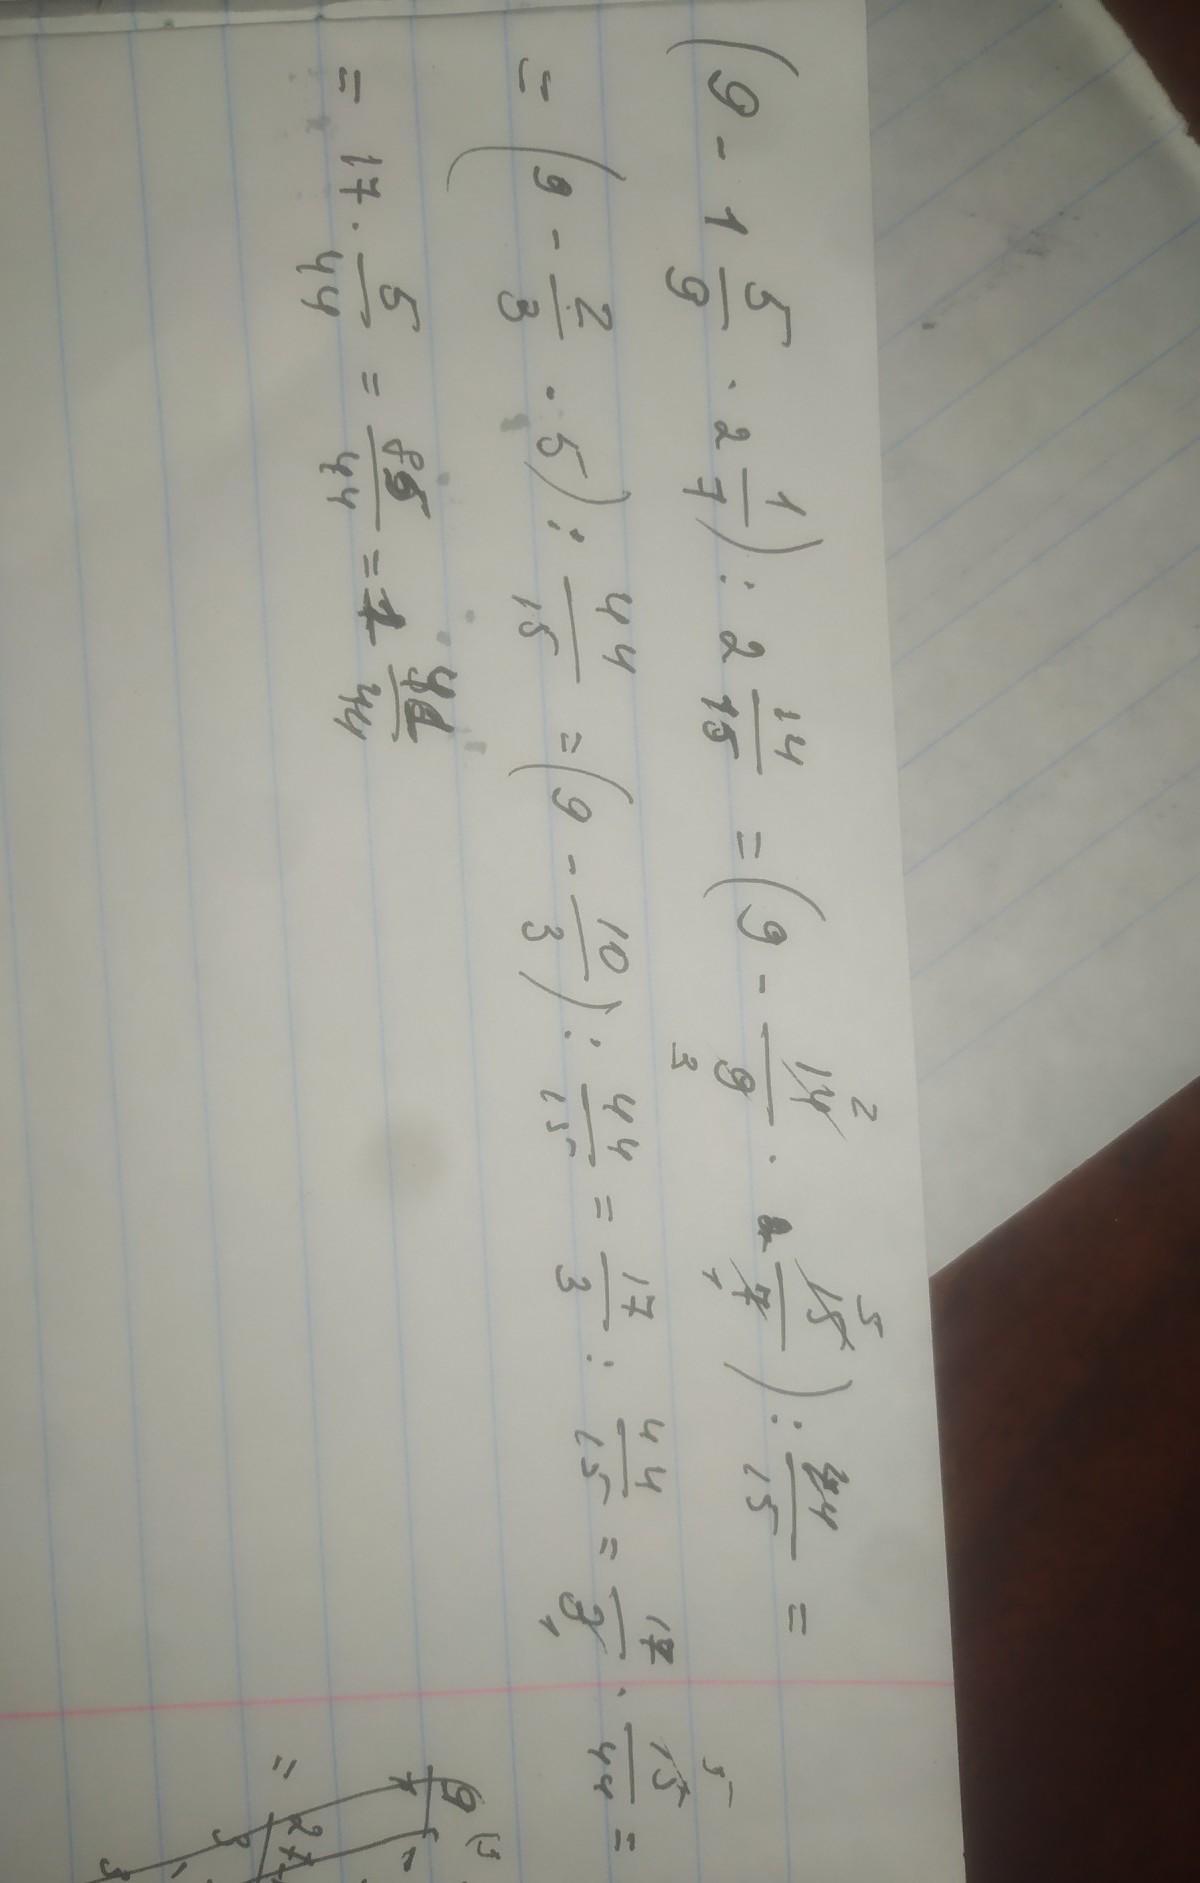 (9 - 1 5/9 · 2 1/7) : 2 14/15 = (9 - 14/9 · 15/7) : 44/15 =
= (9 - 2/3 · 5) : 44/15 = (9 - 10/3) : 44/15 = 17/3 : 44/15 = 17/3 · 15/44 =
= 17 · 5/44 = 85/44 = 1 41/44